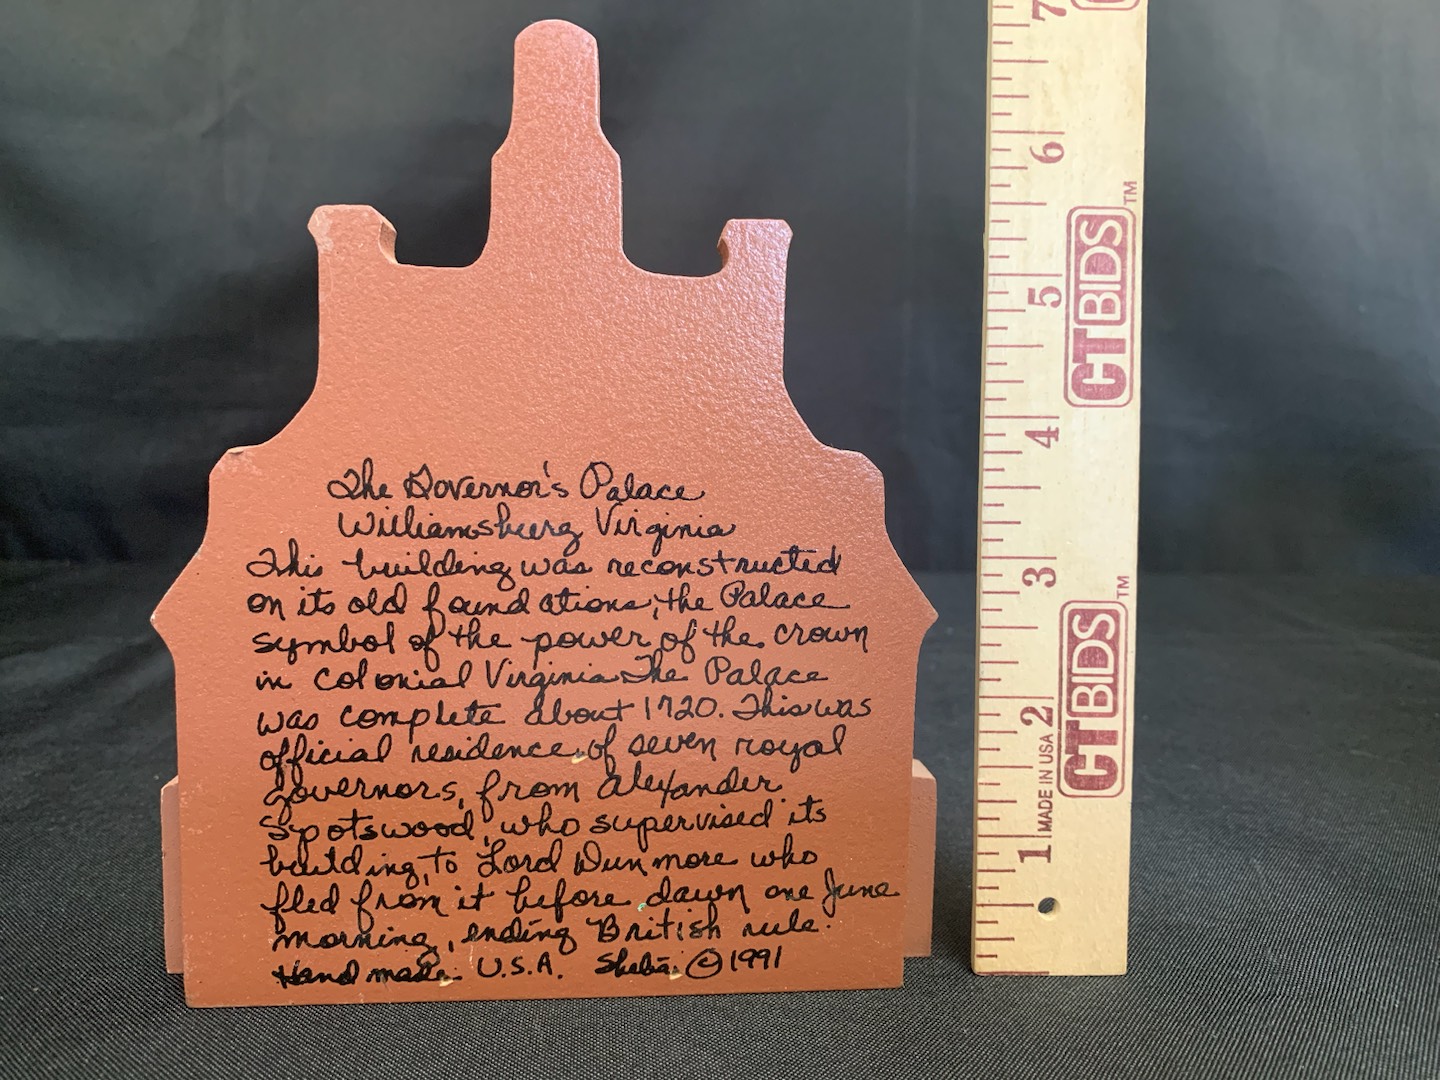 The Governor's Palace
Williamsburg Virginia
This building was reconstructed
on its old foundations, the Palace
symbol of the power of the crown
in Colonial Virginia. The Palace
was complete about 1720. This was
official residence of seven royal
governors, from Alexander
Spotswood, who supervised its
building, to Lord Dunmore who
fled from it before dawn one June
morning, ending British rule.
Hand made U.S.A. Sheba © 1991
7
6
5
4
3
2
1
CTBIDS™
CTBIDS™
MADE IN USA